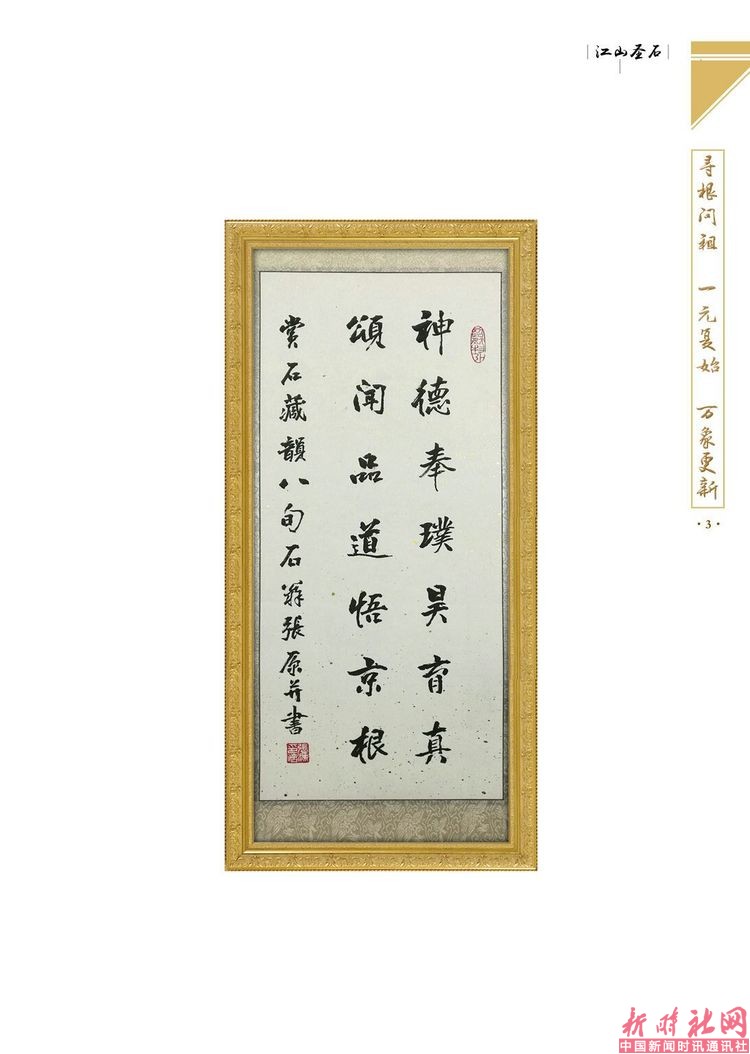 江山圣石
寻根问祖 一元复始 万象更新
·3·
神德奉璞昊育真
頌聞品道悟京根
賞石藏韻八旬石翁張原并書
新时社网
中国新闻时讯通讯社